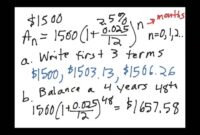 $1500 2.5%
Aₙ = 1500(1+0.025/12)ⁿ n → months
n=0,1,2..
a. Write first 3 terms
$1500, $1503.13, $1506.26
b. Balance a 4 years 48th
1500(1+0.025/12)⁴⁸ = $1657.58